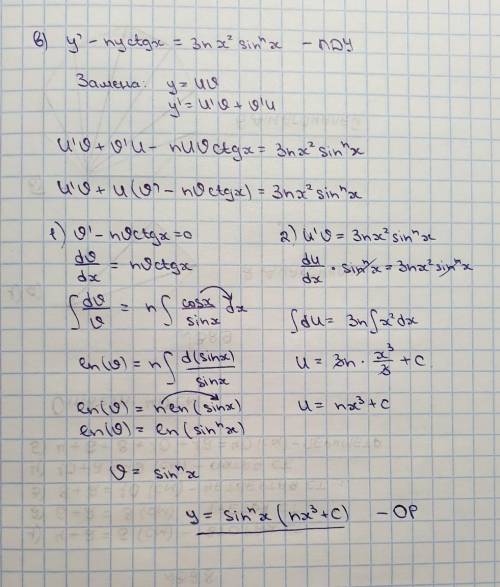 в) y' - ny ctgx = 3nx² sinⁿx - ЛДУ
Замена: y = uϑ
y' = u'ϑ + ϑ'u
u'ϑ + ϑ'u - nuϑ ctgx = 3nx² sinⁿx
u'ϑ + u(ϑ' - nϑ ctgx) = 3nx² sinⁿx
1) ϑ' - nϑ ctgx = 0
dϑ/dx = nϑ ctgx
∫ dϑ/ϑ = n ∫ cosx/sinx dx
ln(ϑ) = n ∫ d(sinx)/sinx
ln(ϑ) = n ln(sinx)
ln(ϑ) = ln(sinⁿx)
ϑ = sinⁿx
2) u'ϑ = 3nx² sinⁿx
du/dx · sinⁿx = 3nx² sinⁿx
∫du = 3n∫x²dx
u = 3n · x³/3 + C
u = nx³ + C
y = sinⁿx (nx³ + C) - ОР